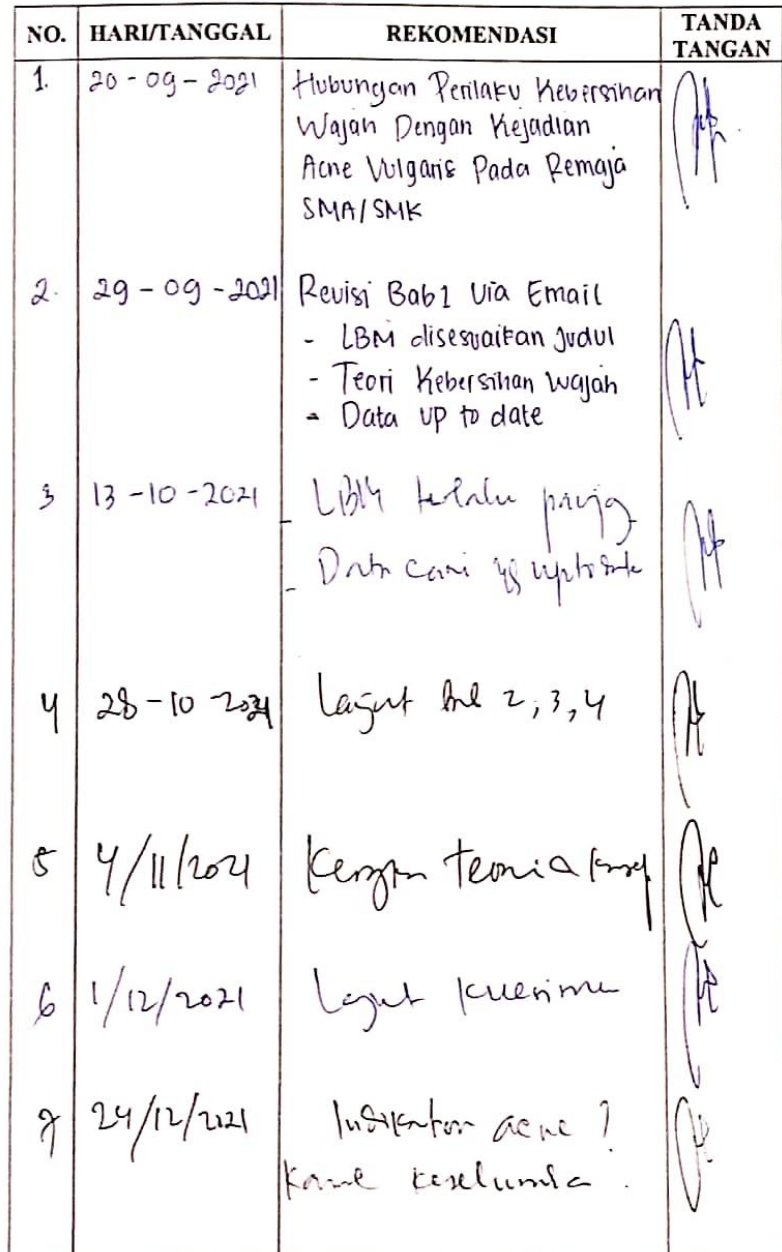 NO. HARI/TANGGAL REKOMENDASI TANDA TANGAN
1. 20-09-2021 Hubungan Perilaku Kebersihan
Wajah Dengan Kejadian
Acne Vulgaris Pada Remaja
SMA/SMK
2. 29-09-2021 Revisi Bab 1 Via Email
- LBM disesuaikan Judul
- Teori Kebersihan Wajah
- Data up to date
3 13-10-2021 - LBM terlalu panjang
- Data cari yg uptodate
4 28-10-2021 Lanjut Bab 2, 3, 4
5 4/11/2021 Kerangka teori &
6 1/12/2021 Lanjut kuesioner
7 24/12/2021 Indikator acne ?